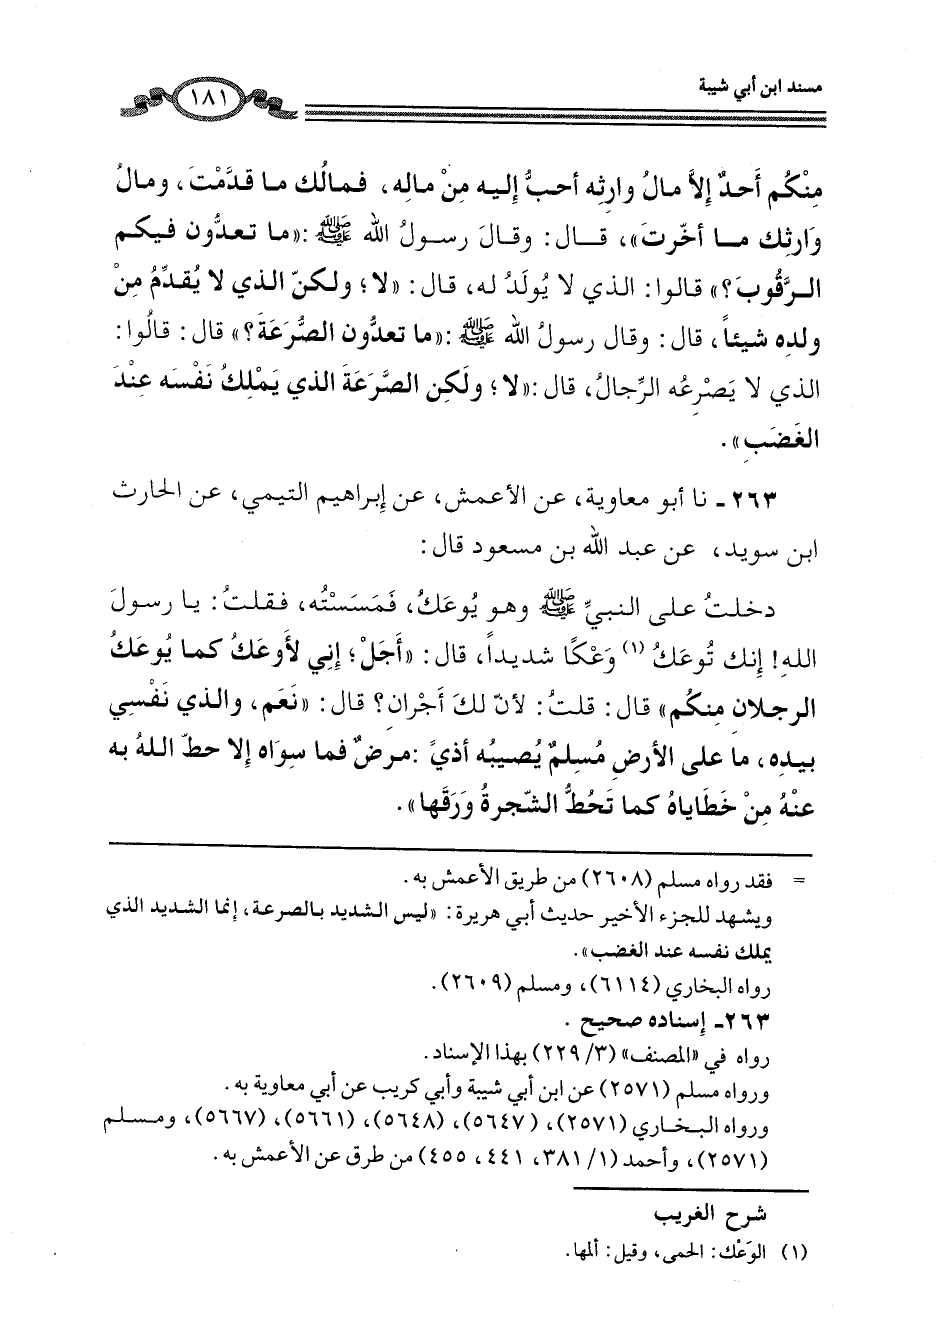 مسند ابن أبي شيبة
١٨١
مِنْكُم أَحدٌ إلاَّ مالُ وارِثِه أحبُّ إليه مِنْ مالِه، فمالُك ما قدَّمْتَ، ومالُ
وَارِثِك مـا أخّرتَ»، قـال: وقالَ رسـولُ الله ﷺ :«ما تعدُّون فيكم
الـرَّقُوبَ؟» قالوا: الذي لا يُولَدُ له، قال: «لا؛ ولكنّ الذي لا يُقدِّمُ مِنْ
ولدِه شيئاً، قال: وقال رسولُ الله ﷺ :«ما تعدُّون الصُّرَعَةَ؟» قال: قالُوا:
الذي لا يَصْرِعُه الرِّجالُ، قال:«لا؛ ولَكِن الصُّرَعَةَ الذي يَمْلِكُ نَفْسَه عِنْدَ
الغَضَبِ».
٢٦٣ ـ نا أبو معاوية، عن الأعمش، عن إبراهيم التيمي، عن الحارث
ابن سويد، عن عبد الله بن مسعود قال:
دخلـتُ علـى النبيِّ ﷺ وهو يُوعَكُ، فمَسَسْتُه، فقلـتُ: يـا رسولَ
الله! إنك تُوعَكُ (١) وَعْكًا شديداً، قال: «أَجَلْ؛ إني لأوعَكُ كمـا يُوعَكُ
الرجلان منكُم» قال: قلتُ: لأنّ لكَ أجْران؟ قال: «نَعَم، والذي نَفْسِي
بيدِه، ما على الأرضِ مُسلِمٌ يُصيبُه أذىً :مرضٌ فما سوَاه إلا حطّ اللهُ به
عنْهُ مِنْ خَطَاياهُ كما تَحُطُّ الشّجرةُ وَرَقَها».
= فقد رواه مسلم (٢٦٠٨) من طريق الأعمش به.
ويشهد للجزء الأخير حديث أبي هريرة: «ليس الشديد بالصرعة، إنما الشديد الذي
يملك نفسه عند الغضب».
رواه البخاري (٦١١٤)، ومسلم (٢٦٠٩).
٢٦٣ـ إسناده صحيح .
رواه في «المصنف» (٣/ ٢٢٩) بهذا الإسناد.
ورواه مسلم (٢٥٧١) عن ابن أبي شيبة وأبي كريب عن أبي معاوية به.
ورواه البـخـاري (٢٥٧١)، (٥٦٤٧)، (٥٦٤٨)، (٥٦٦١)، (٥٦٦٧)، ومسـلـم
(٢٥٧١)، وأحمد (١/ ٣٨١، ٤٤١، ٤٥٥) من طرق عن الأعمش به.
شرح الغريب
(١) الوَعْك: الحمى، وقيل: ألمها.